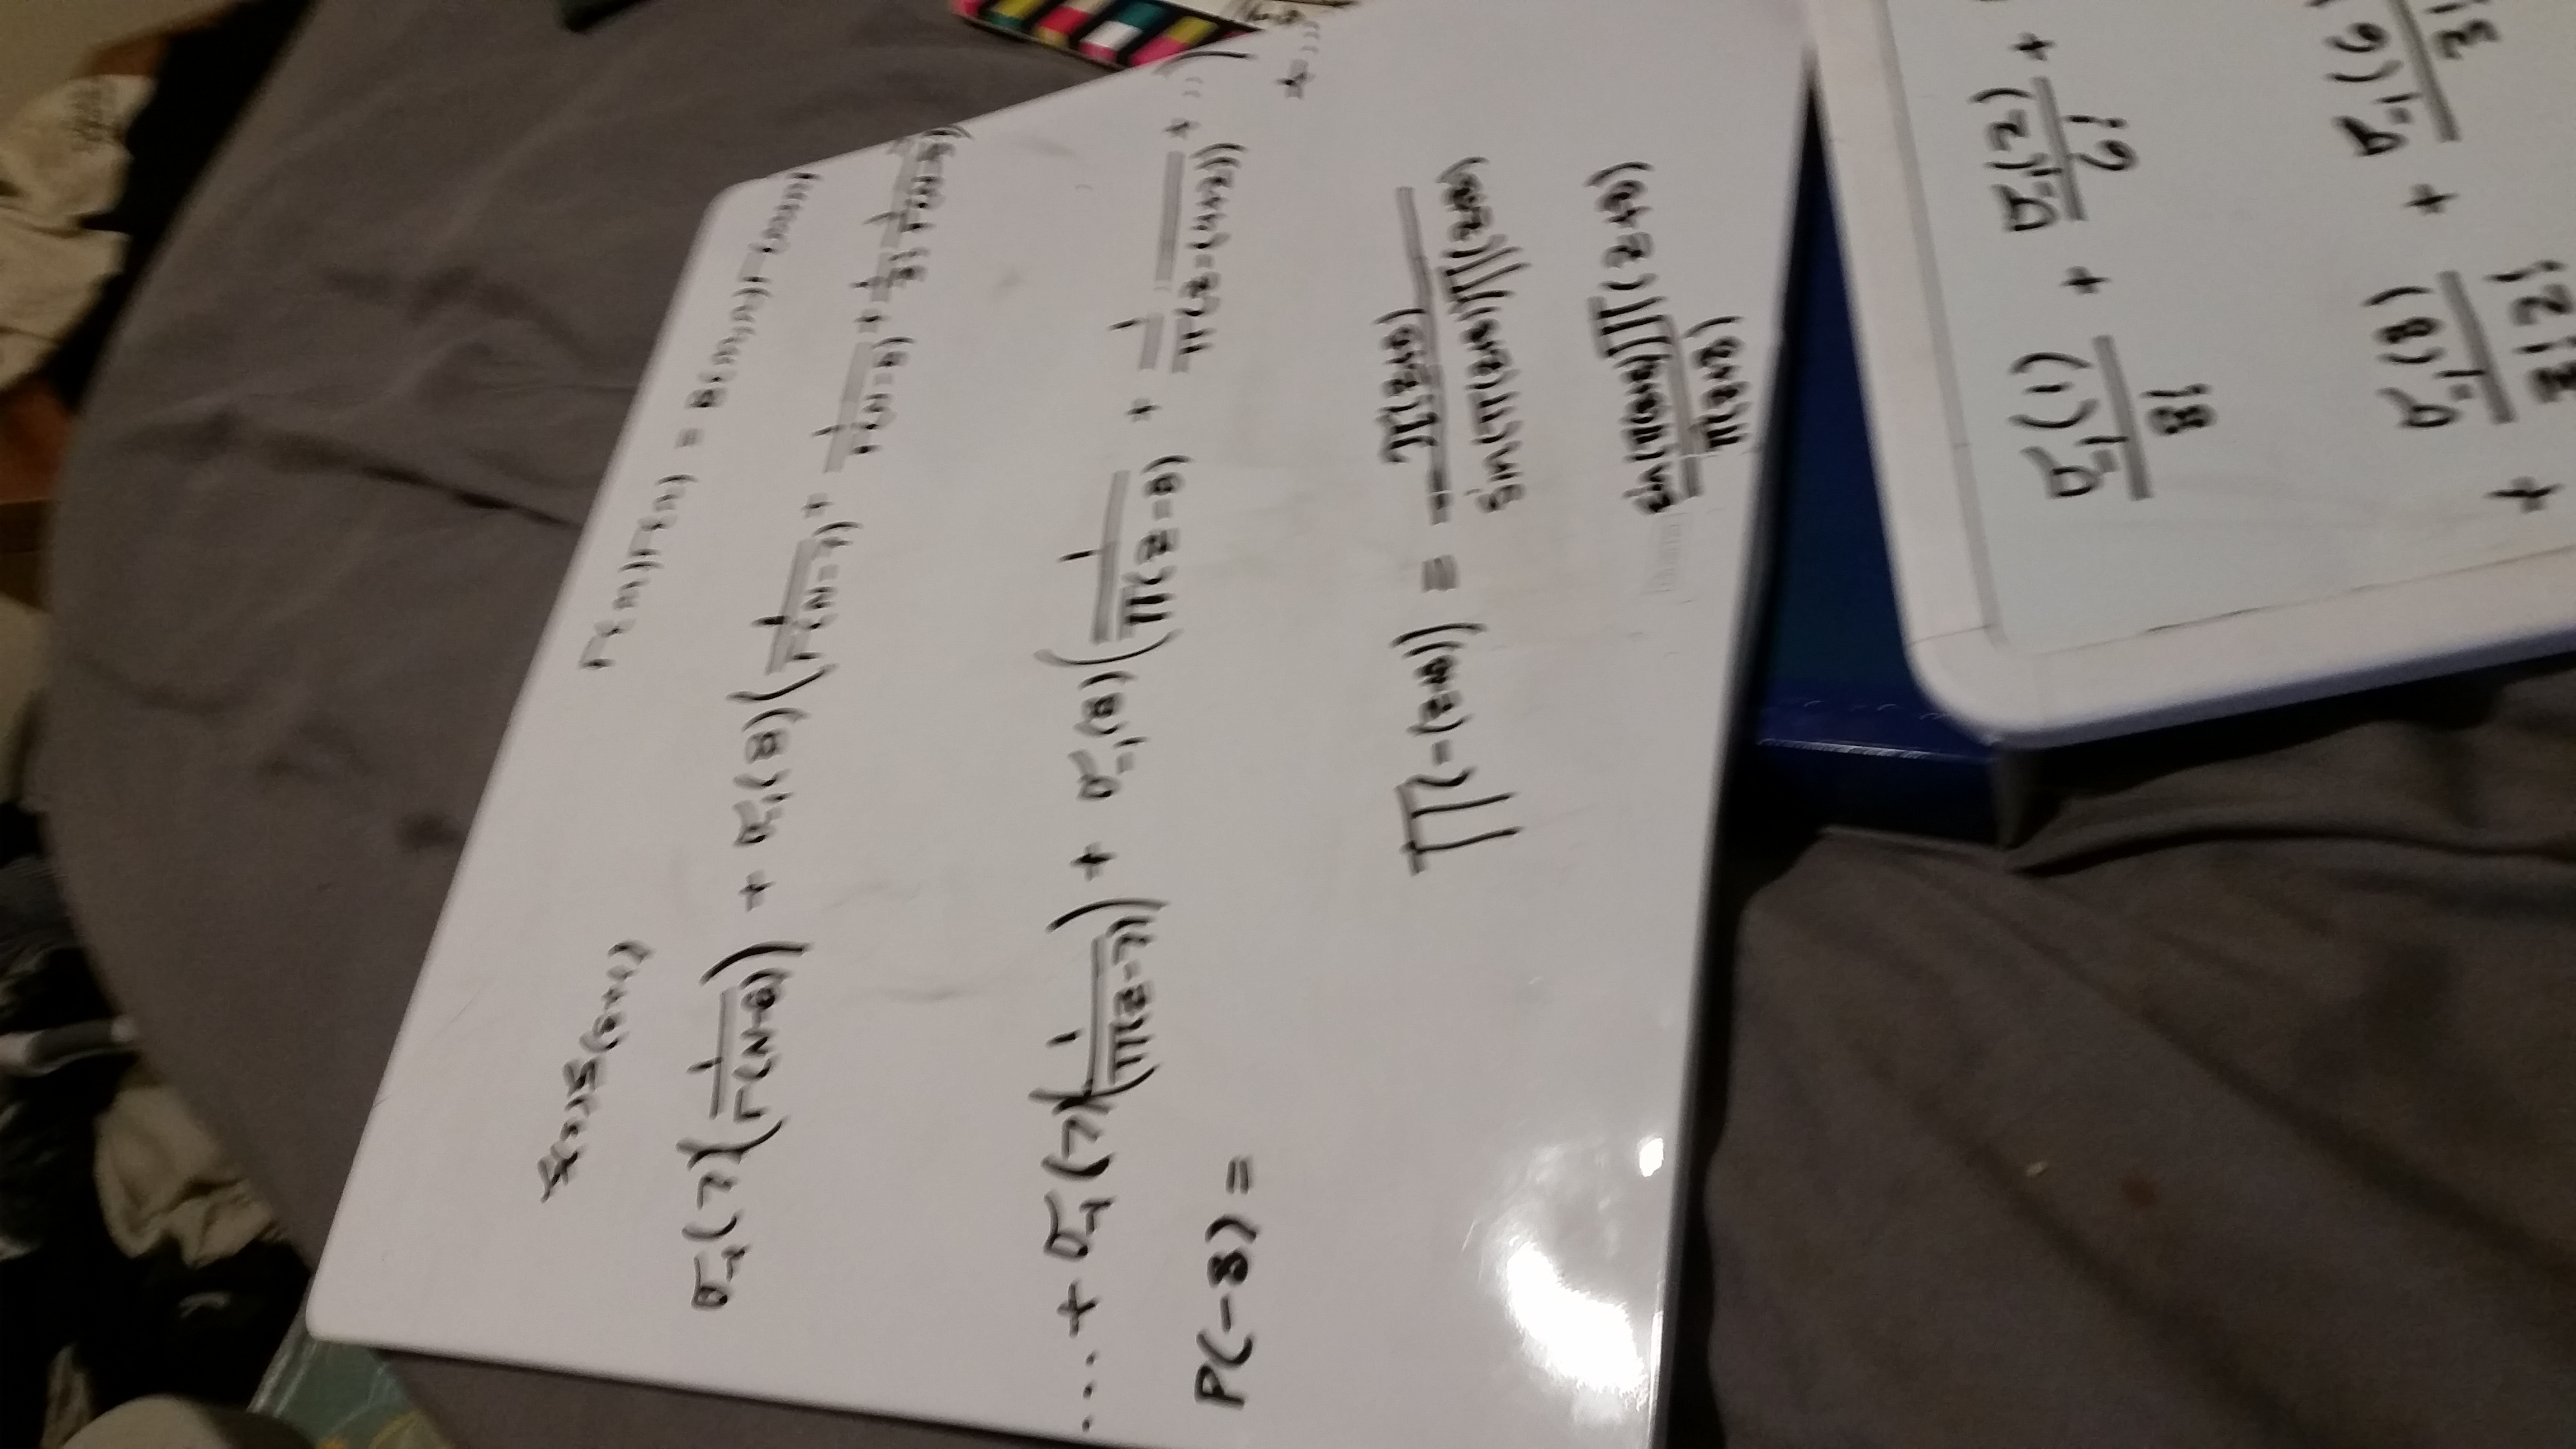 ζ(s)ζ(s+1)
Γ(m)Γ(n) = B(m,n)Γ(m+n)
σ₋₁(7)(1/Γ(N-6)) + σ₋₁(8)(1/Γ(N-7) + 1/Γ(N-8) + 1/2! 1/Γ(N-9))
... + σ₋₁(7)(1/Π(z-7)) + σ₋₁(8)(1/Π(z-8) + 1/Π(z-(4+2)) + ...)
+ ...
P(-8) =
Π(-(z+8)) = π(z+8)/sin(π(z+8))Π(z+8)
sin(π(z+8))Π(z+8)/π(z+8)
σ₋₁(1)/8! + σ₋₁(2)/6! +
+ σ₋₁(8)/2!2! + σ₋₁(6)/3!